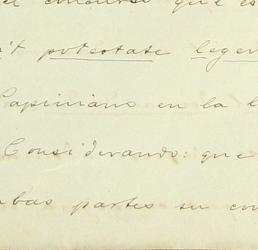 el concurso que es
't potestate legem
Papiniano en la l
Considerando: que
mbas partes su con